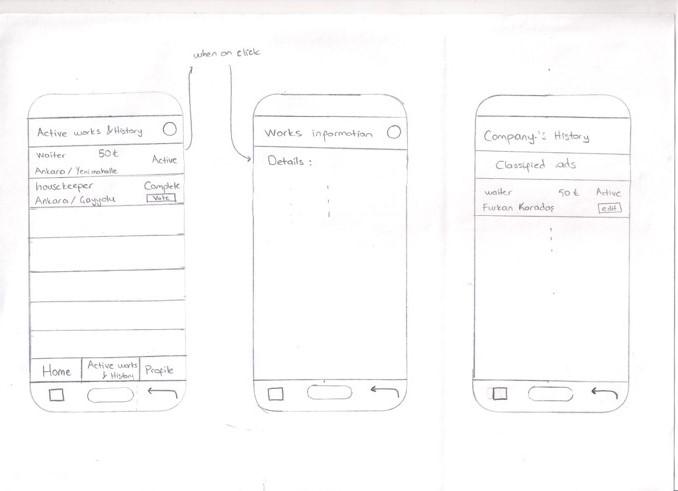 when on click
Active works & History
waiter 50₺ Active
Ankara / Yenimahalle
housekeeper Complete
Ankara / Çayyolu Vote
Home Active works & History Profile
Works information
Details :
Company's History
Classified ads
waiter 50₺ Active
Furkan Karadaş edit